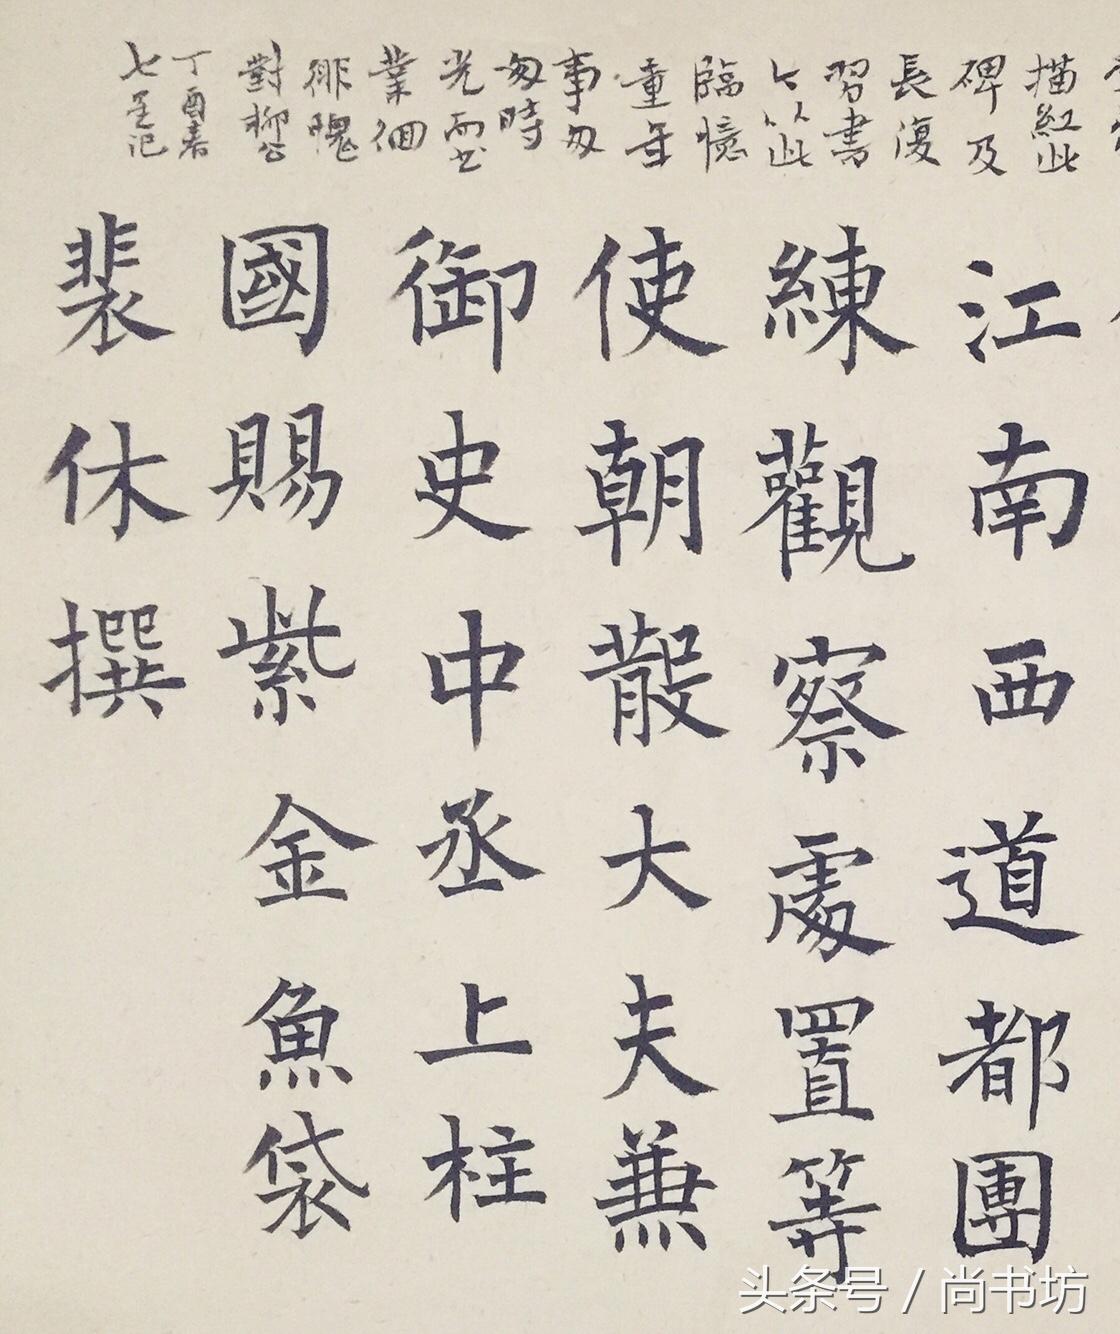 描紅此
碑及
長復
習書
以此
臨憶
童年
事匆
匆時
光而出
業徊
徘愧
對柳公
丁酉春
七呈记
江南西道都團
練觀察處置等
使朝散大夫兼
御史中丞上柱
國賜紫金魚袋
裴休撰
头条号 / 尚书坊